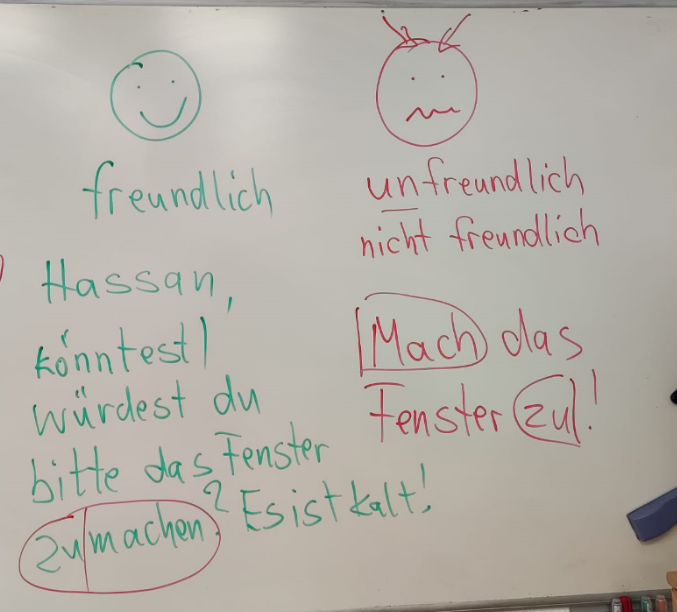 freundlich
Hassan,
könntest/
würdest du
bitte das Fenster
zu/machen? Es ist kalt!
unfreundlich
nicht freundlich
Mach das
Fenster zu!